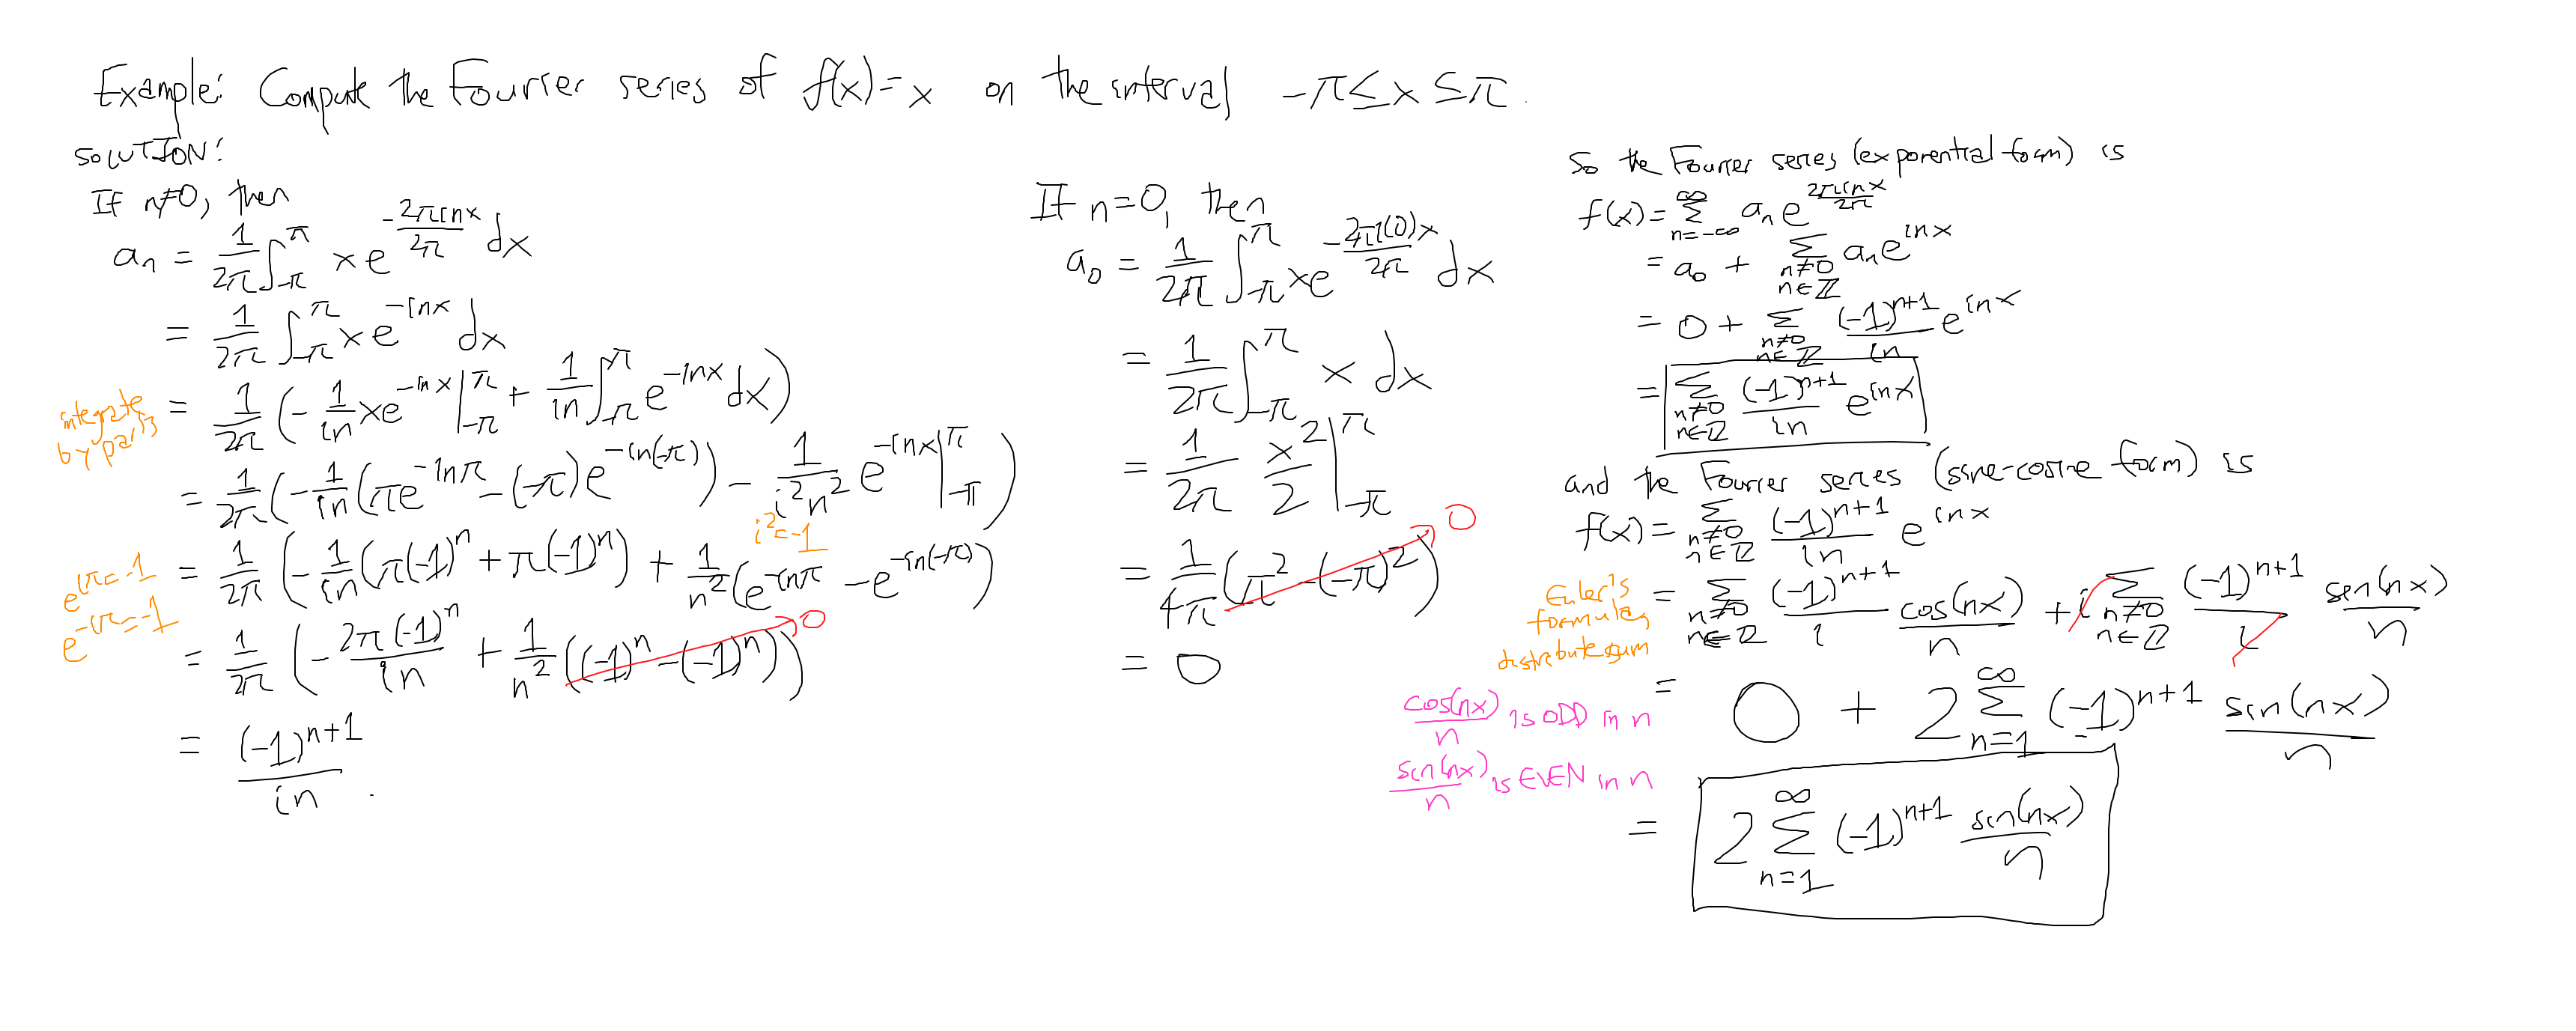 Example: Compute the Fourier series of f(x)=x on the interval -π≤x≤π.
SOLUTION:
If n≠0, then
a_n = 1/2π ∫_{-π}^{π} x e^{-2πinx/2π} dx
= 1/2π ∫_{-π}^{π} x e^{-inx} dx
integrate by parts = 1/2π (-1/in xe^{-inx} |_{-π}^{π} + 1/in ∫_{-π}^{π} e^{-inx} dx)
= 1/2π (-1/in (πe^{-inπ} - (-π)e^{-in(-π)}) - 1/i²n² e^{-inx} |_{-π}^{π})
i²=-1
e^{iπ}=-1
e^{-iπ}=-1
= 1/2π (-1/in (π(-1)^n + π(-1)^n) + 1/n² (e^{-inπ} - e^{-in(-π)}))
= 1/2π (-2π(-1)^n/in + 1/n² ((-1)^n - (-1)^n)) 0
= (-1)^{n+1}/in .
If n=0, then
a_0 = 1/2π ∫_{-π}^{π} x e^{-2πi(0)x/2π} dx
= 1/2π ∫_{-π}^{π} x dx
= 1/2π x²/2 |_{-π}^{π}
= 1/4π (π² - (-π)²) 0
= 0
So the Fourier series (exponential form) is
f(x) = Σ_{n=-∞}^{∞} a_n e^{2πinx/2π}
= a_0 + Σ_{n≠0, n∈ℤ} a_n e^{inx}
= 0 + Σ_{n≠0, n∈ℤ} (-1)^{n+1}/in e^{inx}
= Σ_{n≠0, n∈ℤ} (-1)^{n+1}/in e^{inx}
and the Fourier series (sine-cosine form) is
f(x) = Σ_{n≠0, n∈ℤ} (-1)^{n+1}/in e^{inx}
Euler's formula, distribute sum = Σ_{n≠0, n∈ℤ} (-1)^{n+1}/i cos(nx)/n + i Σ_{n≠0, n∈ℤ} (-1)^{n+1}/i sin(nx)/n
cos(nx)/n is ODD in n
sin(nx)/n is EVEN in n
= 0 + 2 Σ_{n=1}^{∞} (-1)^{n+1} sin(nx)/n
= 2 Σ_{n=1}^{∞} (-1)^{n+1} sin(nx)/n